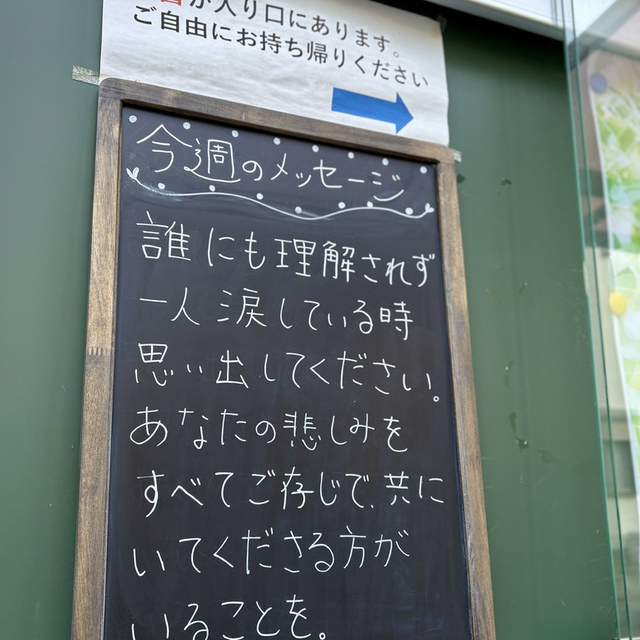 が入り口にあります。
ご自由にお持ち帰りください
今週のメッセージ
誰にも理解されず
一人涙している時
思い出してください。
あなたの悲しみを
すべてご存じで、共に
いてくださる方が
いることを。